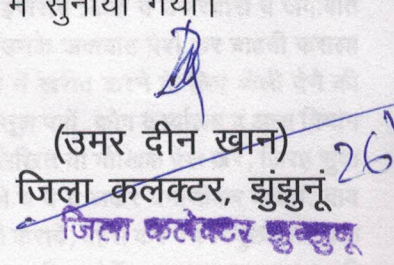 में सुनाया गया
(उमर दीन खान)
जिला कलक्टर, झुंझुनूं
26
जिला कलेक्टर झुन्झुनू